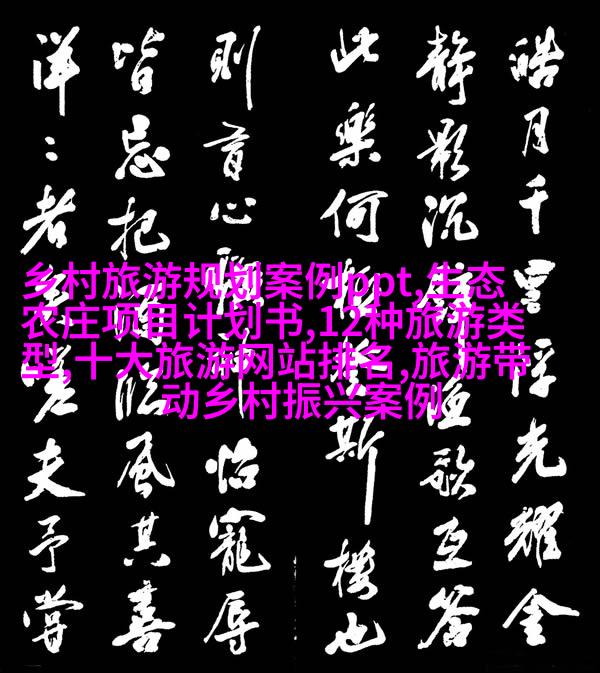 皓月千里浮光耀金
静影沉璧渔歌互答
此樂何極登斯樓也
則有心曠神怡寵辱
皆忘把酒臨風其喜
洋：者矣嗟夫予嘗
乡村旅游规划案例ppt,生态
农庄项目计划书,12种旅游类
型,十大旅游网站排名,旅游带
动乡村振兴案例